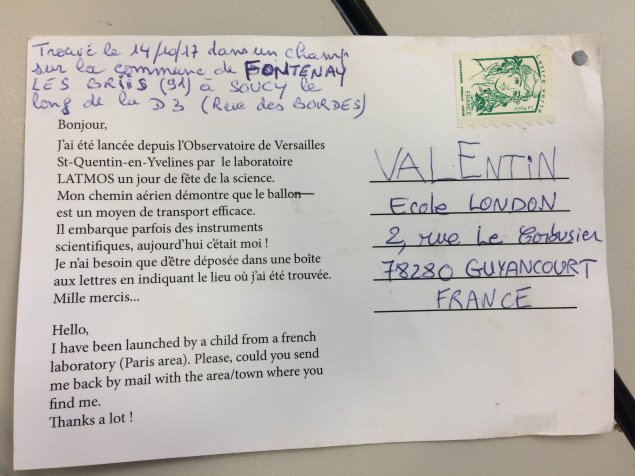 Trouvé le 14/10/17 dans un champ
sur la commune de FONTENAY
LES BRIIS (91) à SOUCY le
long de la D3 (Rue des BORDES)
Bonjour,
J'ai été lancée depuis l'Observatoire de Versailles
St-Quentin-en-Yvelines par le laboratoire
LATMOS un jour de fête de la science.
Mon chemin aérien démontre que le ballon
est un moyen de transport efficace.
Il embarque parfois des instruments
scientifiques, aujourd'hui c'était moi !
Je n'ai besoin que d'être déposée dans une boîte
aux lettres en indiquant le lieu où j'ai été trouvée.
Mille mercis...
Hello,
I have been launched by a child from a french
laboratory (Paris area). Please, could you send
me back by mail with the area/town where you
find me.
Thanks a lot !
Lettre Verte
FRANCE
La Poste
VALENTIN
Ecole LONDON
2, rue Le Corbusier
78280 GUYANCOURT
FRANCE